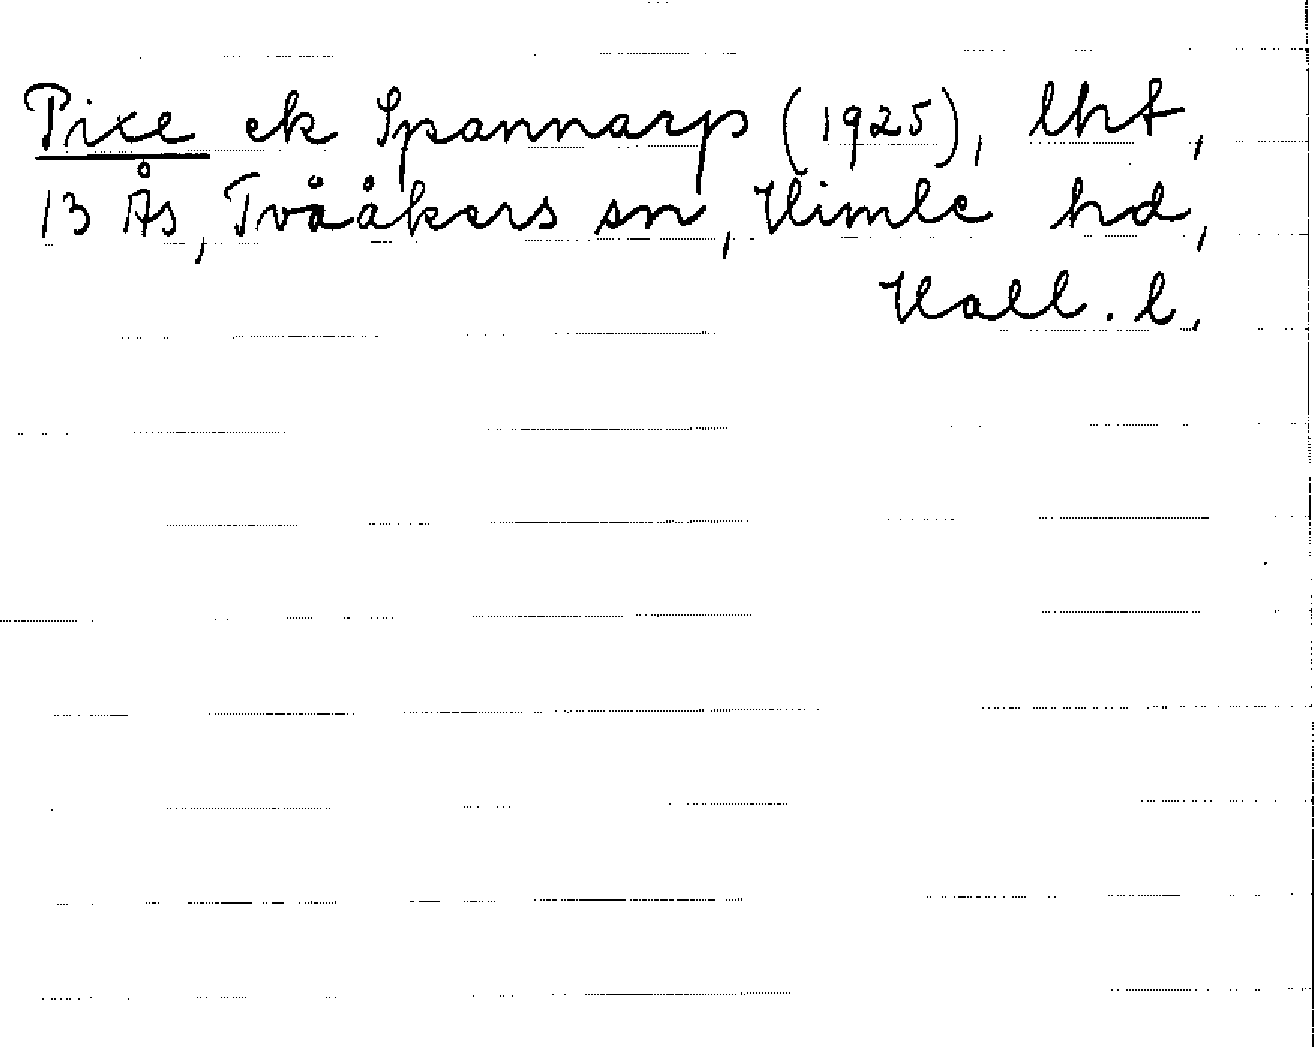 Pixe ek Spannarp (1925), lht,
13 Ås, Tvååkers sn, Himle hd,
Hall. l.